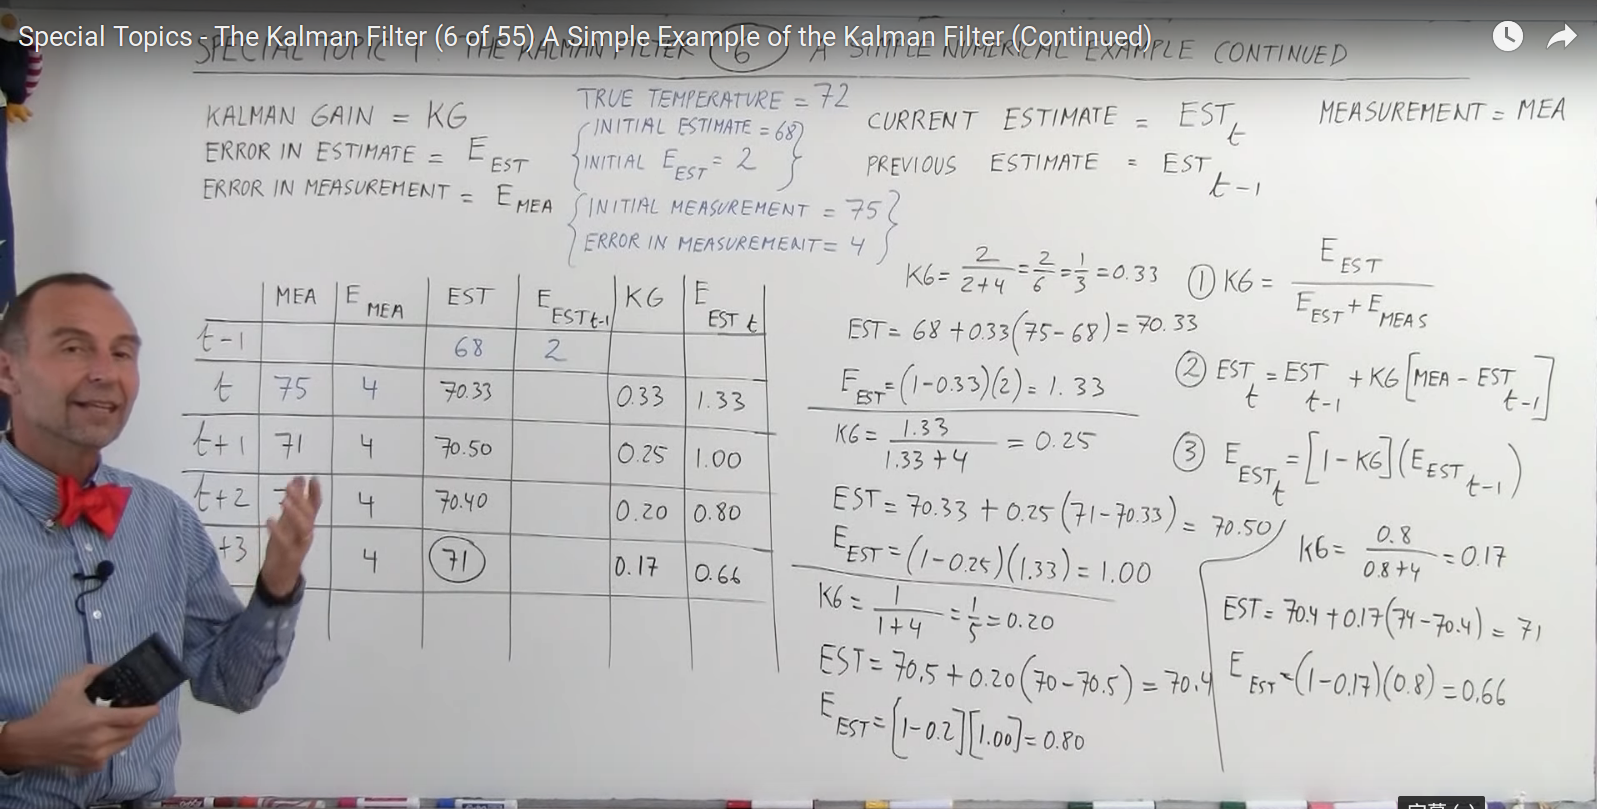 Special Topics - The Kalman Filter (6 of 55) A Simple Example of the Kalman Filter (Continued)
SPECIAL TOPIC 1: THE KALMAN FILTER 6 A SIMPLE NUMERICAL EXAMPLE CONTINUED
KALMAN GAIN = KG
ERROR IN ESTIMATE = E EST
ERROR IN MEASUREMENT = E MEA
TRUE TEMPERATURE = 72
INITIAL ESTIMATE = 68
INITIAL E EST = 2
INITIAL MEASUREMENT = 75
ERROR IN MEASUREMENT = 4
CURRENT ESTIMATE = EST t
PREVIOUS ESTIMATE = EST t-1
MEASUREMENT = MEA
MEA E MEA EST E EST t-1 KG E EST t
t-1 68 2
t 75 4 70.33 0.33 1.33
t+1 71 4 70.50 0.25 1.00
t+2 4 70.40 0.20 0.80
+3 4 71 0.17 0.66
KG = 2/(2+4) = 2/6 = 1/3 = 0.33
EST = 68 + 0.33(75-68) = 70.33
E EST = (1-0.33)(2) = 1.33
KG = 1.33/(1.33+4) = 0.25
EST = 70.33 + 0.25(71-70.33) = 70.50
E EST = (1-0.25)(1.33) = 1.00
KG = 1/(1+4) = 1/5 = 0.20
EST = 70.5 + 0.20(70-70.5) = 70.4
E EST = [1-0.2][1.00] = 0.80
① KG = E EST/(E EST + E MEAS)
② EST t = EST t-1 + KG[MEA - EST t-1]
③ E EST t = [1-KG](E EST t-1)
KG = 0.8/(0.8+4) = 0.17
EST = 70.4 + 0.17(74-70.4) = 71
E EST = (1-0.17)(0.8) = 0.66